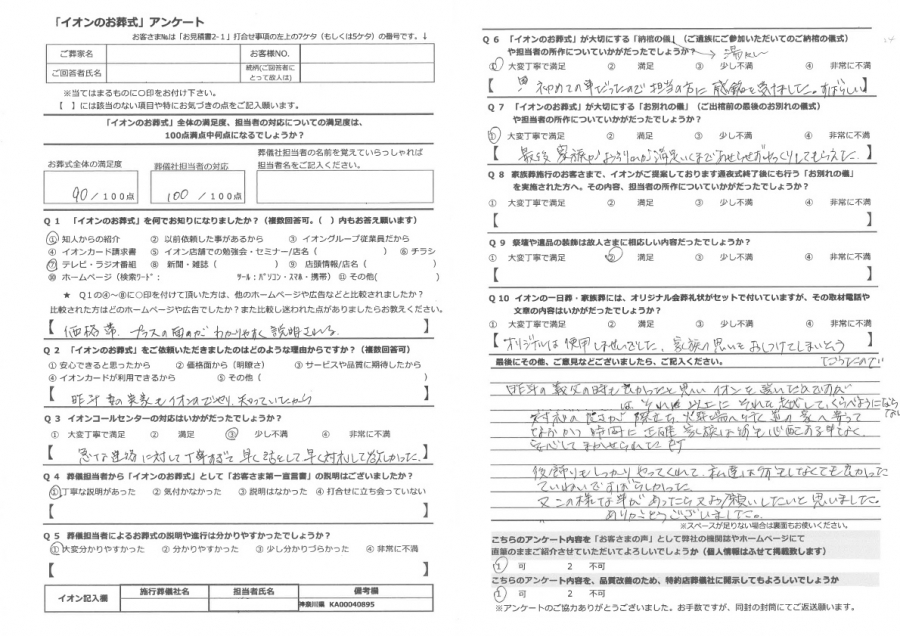 「イオンのお葬式」アンケート
お客さま№は「お見積書2-1」打合せ事項の左上の7ケタ（もしくは5ケタ）の番号です。↓
ご葬家名 お客様NO.
ご回答者氏名 続柄(ご回答者にとって故人は)
※当てはまるものに○印をお付け下さい。
【 】には該当のない項目や特にお気づきの点をご記入願います。
「イオンのお葬式」全体の満足度、担当者の対応についての満足度は、
100点満点中何点になるでしょうか？
お葬式全体の満足度 葬儀社担当者の対応 葬儀社担当者の名前を覚えていらっしゃれば担当者名をご記入ください。
90／100点 100／100点
Q１ 「イオンのお葬式」を何でお知りになりましたか？（複数回答可。（ ）内もお答え願います）
① 知人からの紹介 ② 以前依頼した事があるから ③ イオングループ従業員だから
④ イオンカード請求書 ⑤ イオン店舗での勉強会・セミナー/店名（ ） ⑥ チラシ
⑦ テレビ・ラジオ番組 ⑧ 新聞・雑誌（ ） ⑨ 店頭情報/店名（ ）
⑩ ホームページ（検索ワード： ツール：パソコン・スマホ・携帯） ⑪ その他( )
★ Q１の④～⑧に○印を付けて頂いた方は、他のホームページや広告などと比較されましたか？
比較された方はどのホームページや広告でしたか？また比較し迷われた点がありましたらお教えください。
【 価格帯、プラスの面のが わかりやすく 説明される 】
Q２ 「イオンのお葬式」をご依頼いただきましたのはどのような理由からですか？（複数回答可）
① 安心できると思ったから ② 価格面から（明瞭さ） ③ サービスや品質に期待したから
④ イオンカードが利用できるから ⑤ その他（ ）
【 昨年 の をイオンので 】
Q３ イオンコールセンターの対応はいかがだったでしょうか？
① 大変丁寧で満足 ② 満足 ③ 少し不満 ④ 非常に不満
【 急な連絡に対して丁寧すぎて 早く話をして早く対応して欲しかった。 】
Q４ 葬儀担当者から「イオンのお葬式」として「お客さま第一宣言書」の説明はございましたか？
① 丁寧な説明があった ② 気付かなかった ③ 説明はなかった ④ 打合せに立ち会っていない
【 】
Q５ 葬儀担当者によるお葬式の説明や進行は分かりやすかったでしょうか？
① 大変分かりやすかった ② 分かりやすかった ③ 少し分かりづらかった ④ 非常に不満
【 】
イオン記入欄 施行葬儀社名 担当者氏名 備考欄
神奈川県 KA00040895
Q６ 「イオンのお葬式」が大切にする「納棺の儀」（ご遺族にご参加いただいてのご納棺の儀式）
や担当者の所作についていかがだったでしょうか？
① 大変丁寧で満足 ② 満足 ③ 少し不満 ④ 非常に不満
【 初めての事だったので 担当の方に 感銘を受けました。すばらしい 】
Q７ 「イオンのお葬式」が大切にする「お別れの儀」（ご出棺前の最後のお別れの儀式）
や担当者の所作についていかがだったでしょうか？
① 大変丁寧で満足 ② 満足 ③ 少し不満 ④ 非常に不満
【 最後 家族が 満足いくまで ゆっくりしてもらえた 】
Q８ 家族葬施行のお客さまで、イオンがご提案しております通夜式終了後にも行う「お別れの儀」
を実施された方へ。その内容、担当者の所作についていかがだったでしょうか？
① 大変丁寧で満足 ② 満足 ③ 少し不満 ④ 非常に不満
【 】
Q９ 祭壇や遺品の装飾は故人さまに相応しい内容だったでしょうか？
① 大変丁寧で満足 ② 満足 ③ 少し不満 ④ 非常に不満
【 】
Q10 イオンの一日葬・家族葬には、オリジナル会葬礼状がセットで付いていますが、その取材電話や
文章の内容はいかがだったでしょうか？
① 大変丁寧で満足 ② 満足 ③ 少し不満 ④ 非常に不満
【 オリジナルは使用しませんでした、家族の思いをおしつけてしまいそう 】
だったので
最後にその他、ご意見などございましたら、ご記入ください。
昨年の義父の時も良かったと思い イオンを
はそれ以上に それを超えて
対応の 火葬場へ行く 家へ寄って
なおかつ時間に正確 家族は何も心配する事なく、
安心してまかせられた
後飾りもしっかりやってくれて、私達は何もしなくても良かった
ていねいですばらしかった。
又この様な事があったら又お願いしたいと思いました。
ありがとうございました。
※スペースが足りない場合は裏面もお使いください。
こちらのアンケート内容を「お客さまの声」として弊社の機関誌やホームページにて
直筆のままご紹介させていただいてよろしいでしょうか（個人情報はふせて掲載致します）
1 可 2 不可
こちらのアンケート内容を、品質改善のため、特約店葬儀社に開示してもよろしいでしょうか
1 可 2 不可
※アンケートのご協力ありがとうございました。お手数ですが、同封の封筒にてご返送願います。